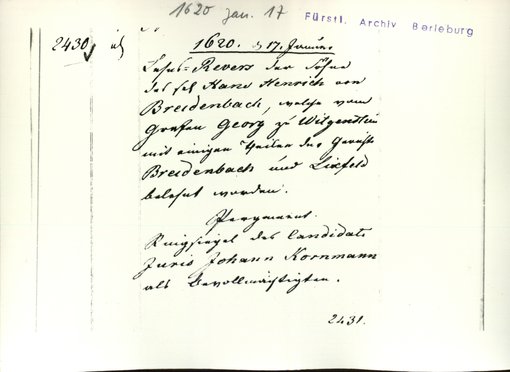 1620 Jan. 17
Fürstl. Archiv Berleburg
2430
1620. 17. Januar.
Lehns-Revers der Söhne
des sel Hans Henrich von
Breidenbach, welche vom
Grafen Georg zu Witgenstein
mit einigen Theilen des Gerichts
Breidenbach und Lixfeld
belehnt worden.
Pergament.
Ringsiegel des Candidats
Juris Johann Kornmann
als Bevollmächtigten.
2431.